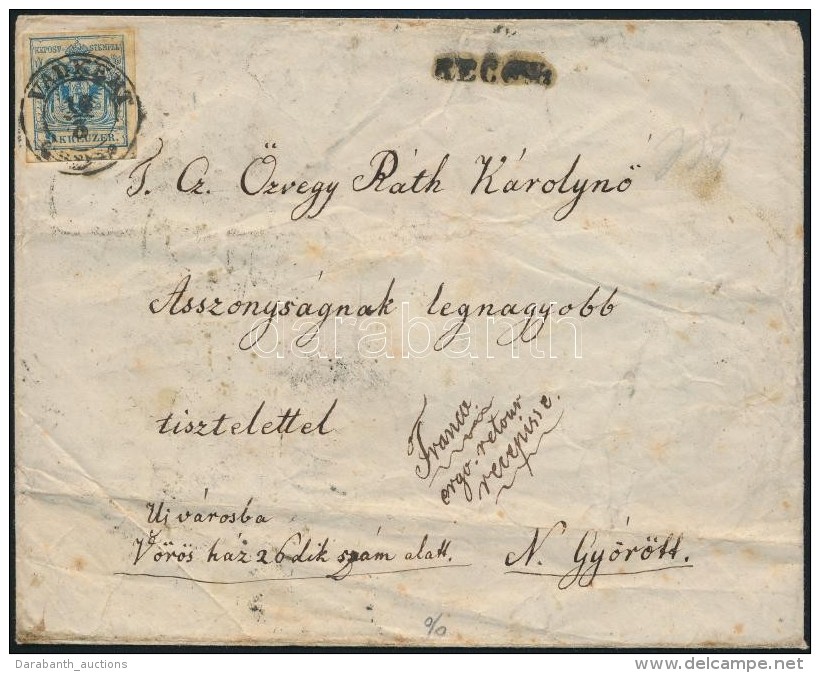 KKPOST-STEMPEL
VADKERT
KREUZER.
RECOM
T. Cz. Özvegy Ráth Károlynő
Asszonyságnak legnagyobb
darabanth
tisztelettel
Franco.
ergo. retour
recepisse.
Uj városba
Vörös ház 26dik szám alatt.
N. Győrött.
%
Darabanth_auctions
www.delcampe.net